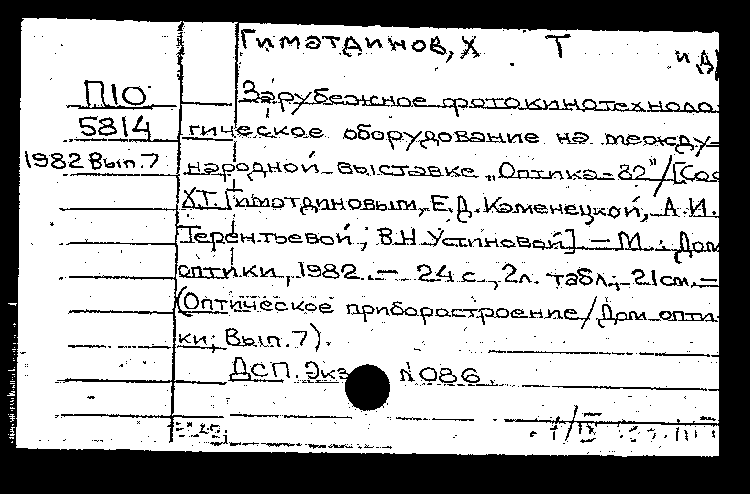 Гиматдинов, Х Т и д
П10
5814
1982 Вып. 7
Зарубежное фотокинотехноло
гическое оборудование на между-
народной выставке „Оптика-82"/[Сос
Х.Г. Гиматдиновым, Е.Д. Каменецкой, А.И.
Терентьевой, В.Н. Устиновой] – М.: Дом
оптики, 1982. – 24 с., 2 л. табл.; 21 см. –
(Оптическое приборостроение/Дом опти-
ки; Вып. 7).
ДСП. Экз N 086.